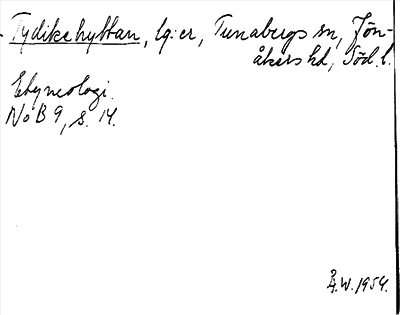 Tydikehyttan, lg:er, Tunabergs sn, Jön-
åkers hd, Söd. l.
Etymologi.
NoB 9, s. 14.
Å.W. 1954.